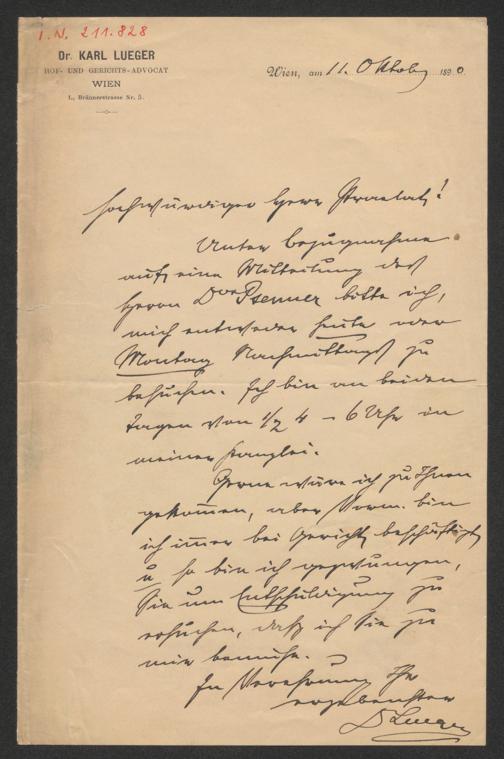 I.N. 211.828
Dr. KARL LUEGER
HOF- UND GERICHTS-ADVOCAT
WIEN
I., Bräunerstrasse Nr. 5.
Wien, am 11. Oktob 1890.
Hochwürdiger Herr Praelat!
Unter Bezugnahme
auf eine Mitteilung des
Herrn Dor Psenner bitte ich,
mich entweder heute oder
Montag Nachmittags zu
besuchen. Ich bin an beiden
Tagen von 1/2 4 – 6 Uhr in
meiner Kanzlei.
Gerne wäre ich zu Ihnen
gekom̅en, aber Vorm. bin
ich im̅er bei Gericht beschäftigt
u so bin ich gezwungen,
Sie um Entschuldigung zu
ersuchen, daß ich Sie zu
mir bemühe.
In Verehrung Ihr
ergebenster
DLueger